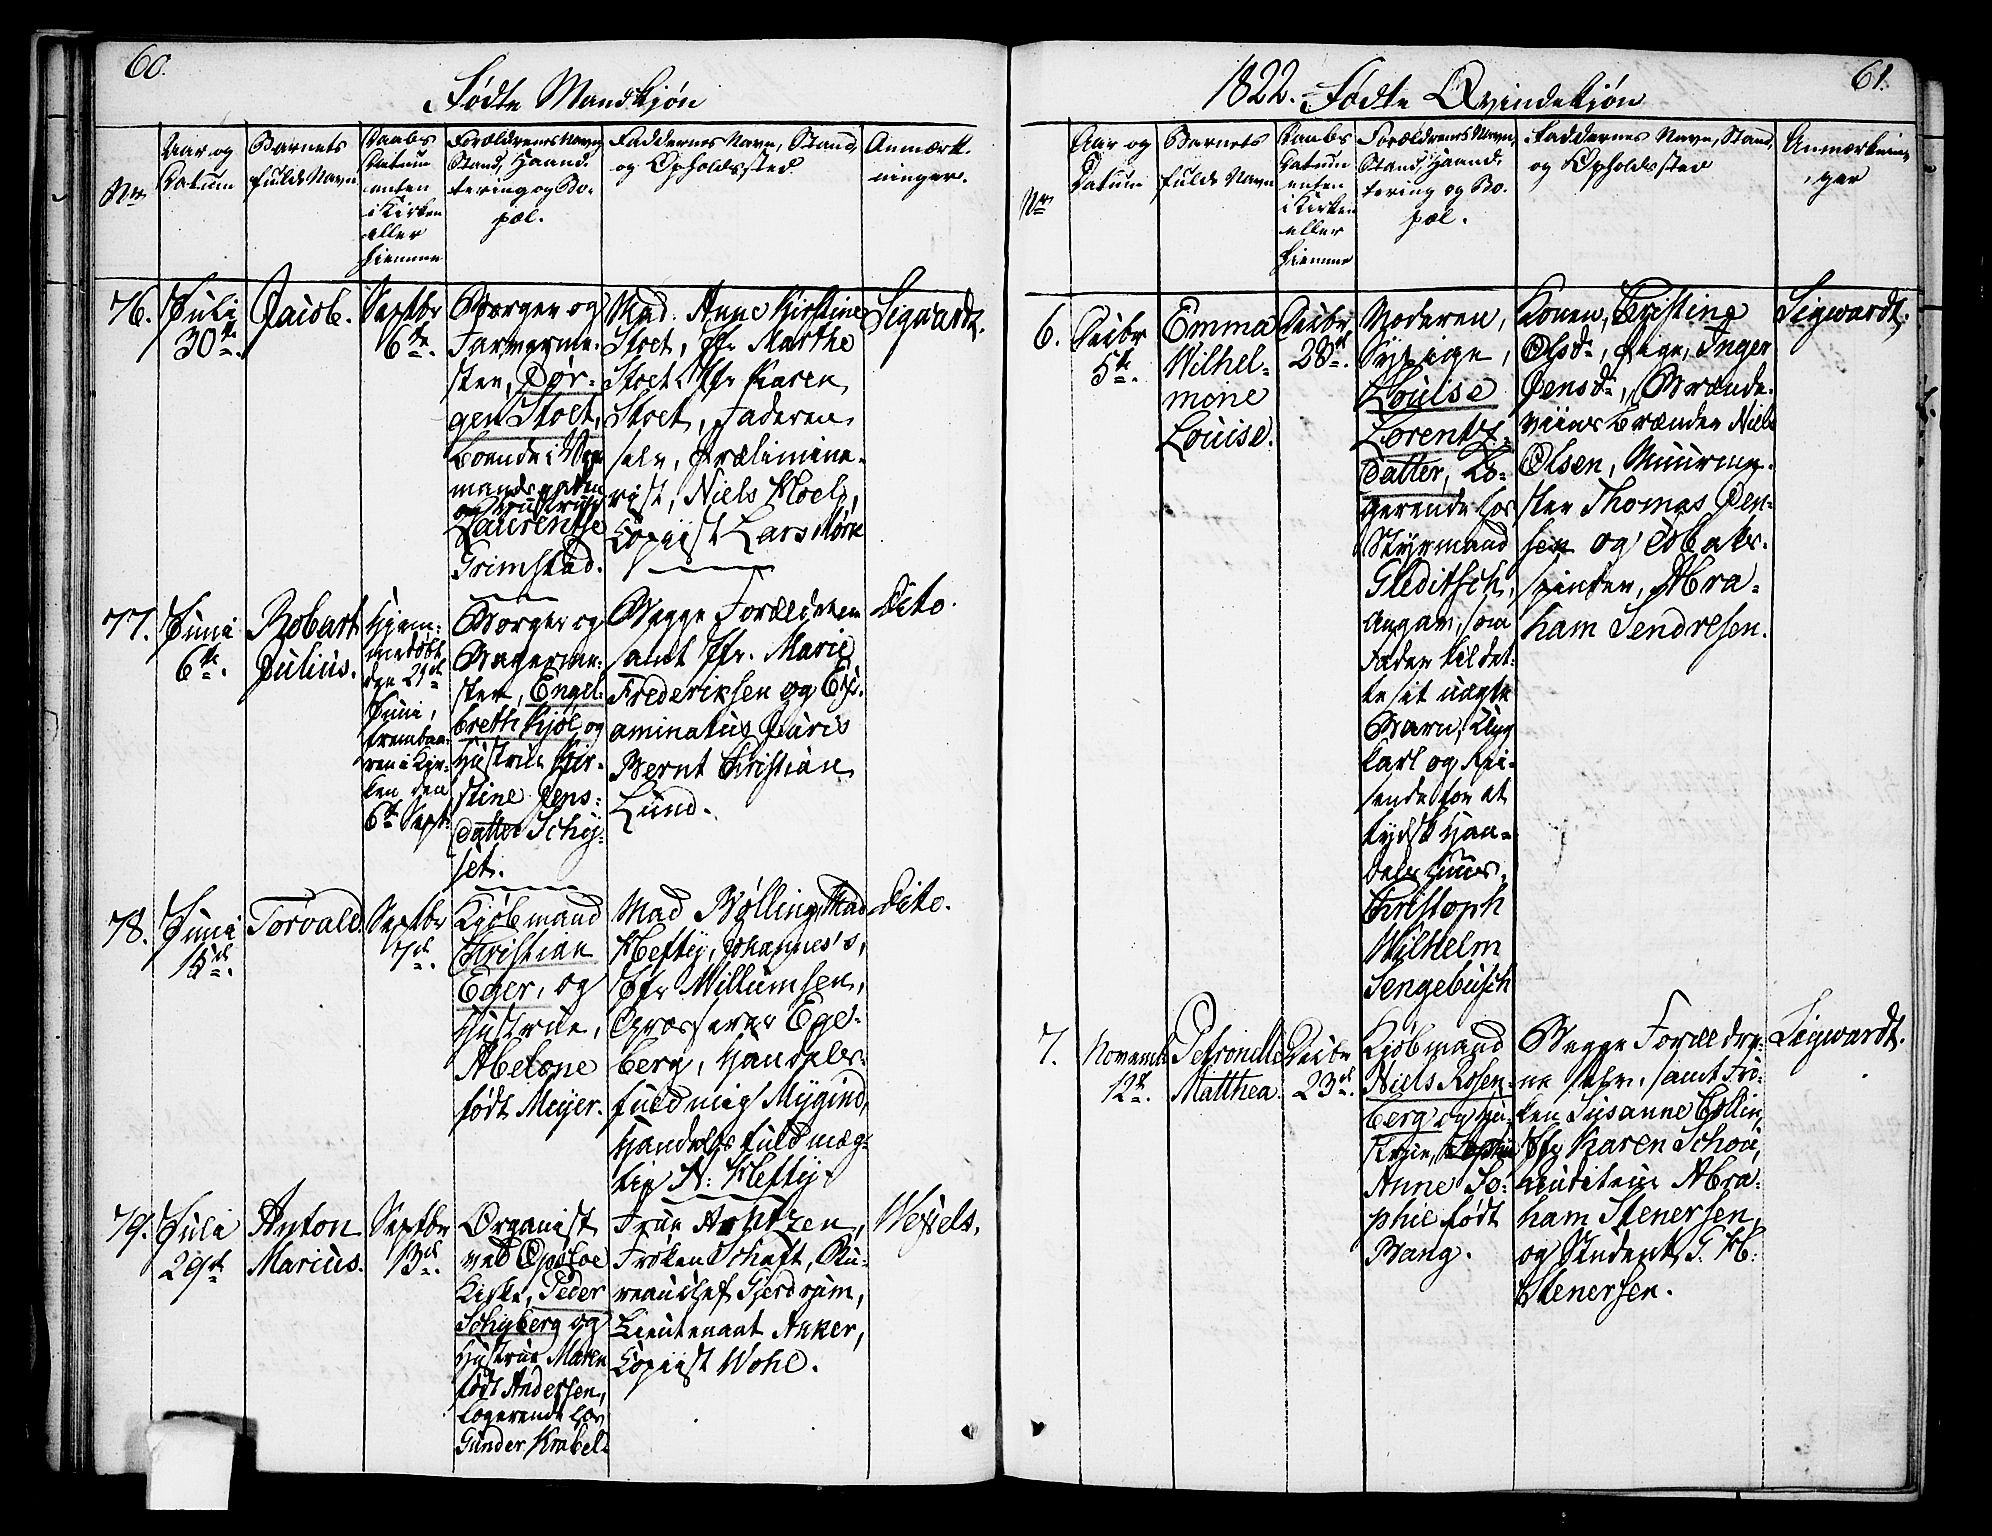 60.
Fødte Mandkjøn
Nr
Aar og
Datum
Barnets
fulde Navn
Daabs
Datum
enten
i Kirken
eller
hiemme
Forældrenes Navn,
Stand, Haand-
tering og Bo-
pæl.
Faddernes Navn, Stand,
og Opholdssted
Anmærk-
ninger.
76.
Juli
30te
Jacob.
Septbr
6te
Borger og
Farverme-
ster, Jør-
gen Stoet,
boende i
og Hustrue
Laurentse
Grimstad.
Mad. Anne Kirstine
Stoet, Jfr Marthe
Stoet, Jfr Karen
Stoet, Faderen
selv, Prælimine-
rist, Niels Moel,
Copiist Lars Mørk
Sigwardt.
77.
Juni
6te
Robart
Julius.
Hjem-
medøbt
den 21de
Juni,
frembaa-
ren i Kir-
ken den
6te Sept.
Borger og
Bagerme-
ster, Engel-
breth Kjøl og
Hustrue Kir-
stine Jens-
datter Schøy-
set.
Begge Forældrene
samt Jfr. Marie
Frederiksen og Ex-
aminatus Juris
Bernt Christian
Lund.
Dito.
78.
Juni
15de
Torvald.
Septbr
7de
Kjøbmand
Christian
Eger, og
Hustrue,
Abelone
født Meyer.
Mad Bølling, Mad
Heftÿ, Johannes's,
Jfr Willumsen,
Grosserer Ege-
berg, Handels-
fuldmægt Mygind,
Handelsfuldmæg-
tig N. Heftÿ.
Dito.
79.
Juli
29de
Anton
Marius.
Septbr
13de
Organist
ved Opsloe
Kirke, Peder
Schiyberg og
Hustrue Maren
født Andersen,
logerende hos
Gunder Krabel.
Frue Arntzen,
Frøken Schaft, Bu-
reauchef Gjerdrum,
Lieutenant Anker,
Copiist Wohl.
Wexels.
1822. Fødte Qvindekjøn
61.
Nr
Aar og
Datum
Barnets
fulde Navn
Daabs
Datum
enten
i Kirken
eller
hiemme
Forældrenes Navn,
Stand, Haand-
tering og Bo-
pæl.
Faddernes Navn, Stand,
og Opholdssted
Anmærknin-
ger
6.
Octbr
5te
Emma
Wilhel-
mine
Louise.
Octbr
28de
Moderen,
Sypige,
Louise
Lorentz-
datter, Lo-
gerende hos
Styrmand
Gleditsch,
Angav, som
Fader til det-
te sit uægte
Barn, Ung-
karl og Rei-
sende for et
tydsk Han-
delshuus,
Christoph
Wilhelm
Sengebusch
Konen, Christine
Olsd., Pige, Inger
Jensd., Brænde-
viinsbrænder Niels
Olsen, Muurme-
ster Thomas Jen-
sen og Tobaks-
spinder, Abra-
ham Sendresen.
Sigwardt.
7.
Novemb
12te
Petronelle
Matthea.
23de
Kjøbmand
Niels Rosen-
berg og Hu-
strue,
Anne So-
phie født
Bang.
Begge Forældre-
ne selv, samt Frø-
ken Susanne Collin,
Jfr Karen Schou,
Lieutenant Abra-
ham Stenersen,
og Student G. H.
Stenersen.
Sigwardt.